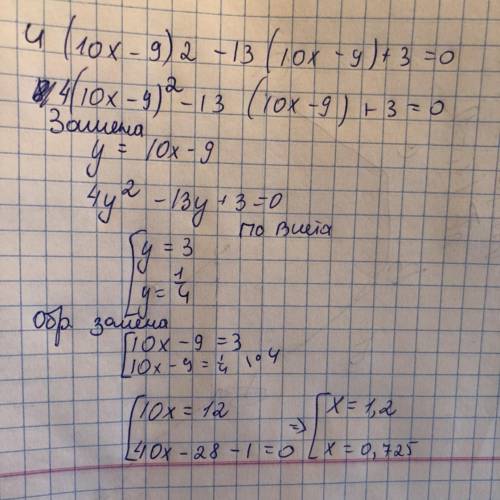 4 (10x - 9) 2 - 13 (10x - 9) + 3 = 0
4(10x - 9)² - 13 (10x - 9) + 3 = 0
Замена
y = 10x - 9
4y² - 13y + 3 = 0
по Виета
[ y = 3
y = 1/4
Обр замена
[ 10x - 9 = 3
10x - 9 = 1/4 | • 4
[ 10x = 12 => [ x = 1,2
40x - 28 - 1 = 0 x = 0,725